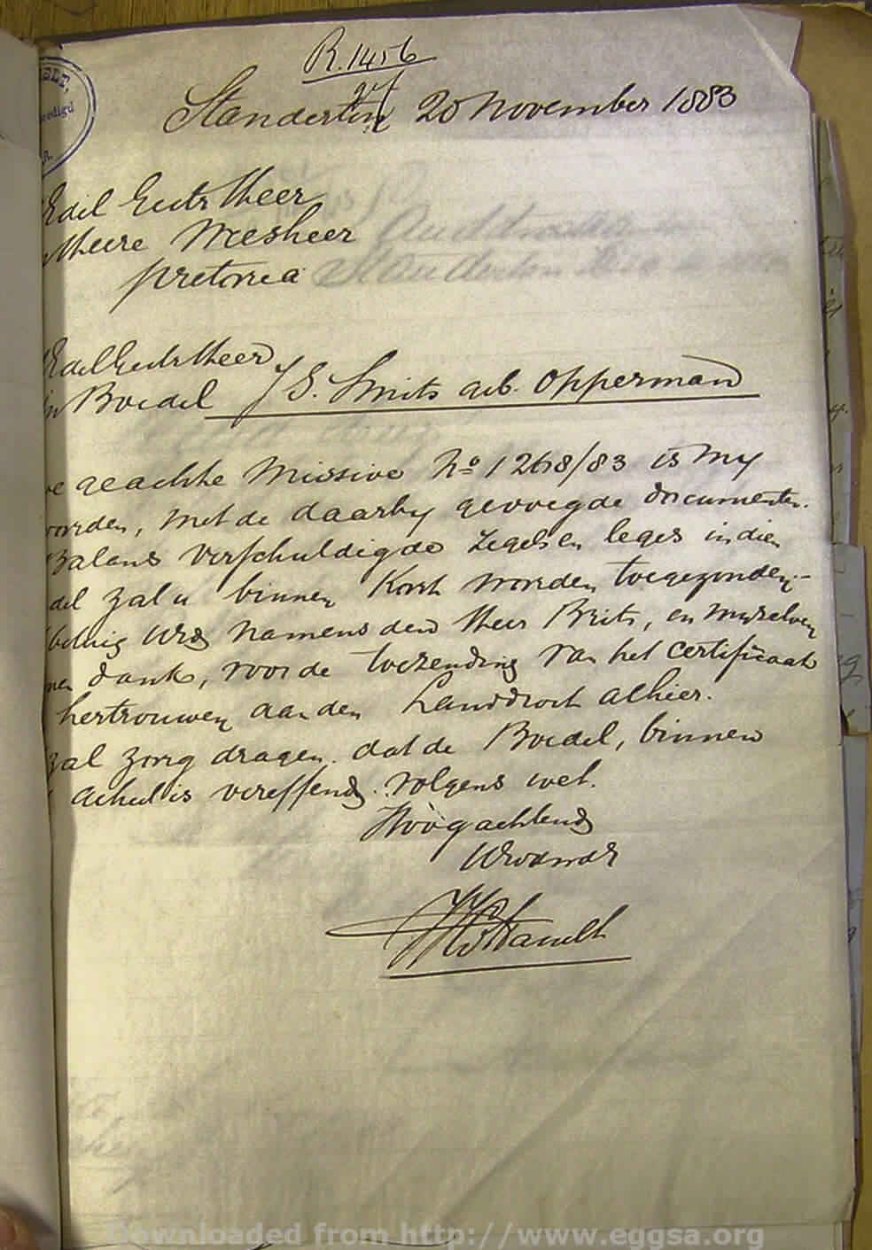 R. 1456
Standerton 20 November 1883
Edel Gestr Heer
Heere Weesheer
Pretoria
Edel Gestr Heer
in Boedel J S. Smits geb. Opperman
ve geachte Missive No 1268/83 is my
worden, met de daarby gevoegde documenten.
Balans verschuldigde Zegels en leges in dien
del zal u binnen Kort worden toegezonden.-
betuig UEd namens den Heer Brits, en myselven
dank, voor de toezending van het certificaat
hertrouwen aan den Landdrost alhier.
zal zorg dragen dat de Boedel, binnen
vereffend volgens wet.
Hoogachtend
UEd
Downloaded from http://www.eggsa.org